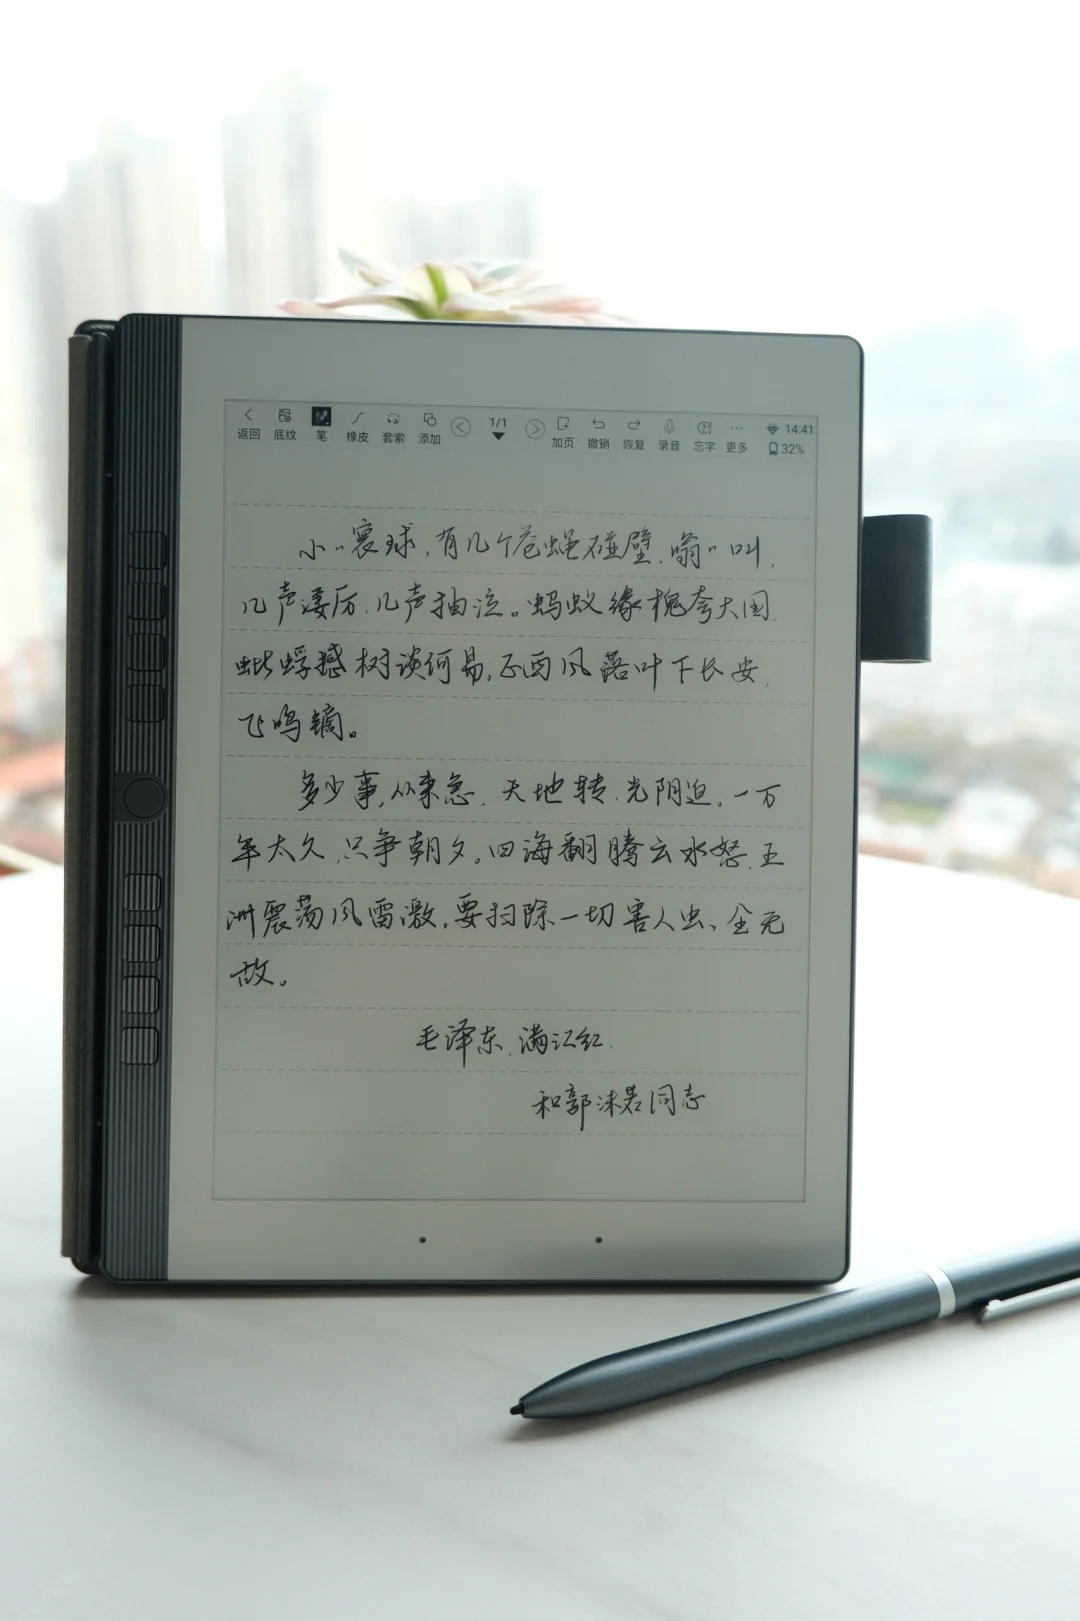 返回 底纹 笔 橡皮 套索 添加 1/1 加页 撤销 恢复 录音 忘字 更多 14:41
32%
小〃寰球,有几个苍蝇碰壁.嗡〃叫,
几声凄厉,几声抽泣。蚂蚁缘槐夸大国,
蚍蜉撼树谈何易,正西风落叶下长安,
飞鸣镝。
多少事,从来急,天地转,光阴迫,一万
年太久,只争朝夕。四海翻腾云水怒,五
洲震荡风雷激,要扫除一切害人虫、全无
敌。
毛泽东,满江红.
和郭沫若同志